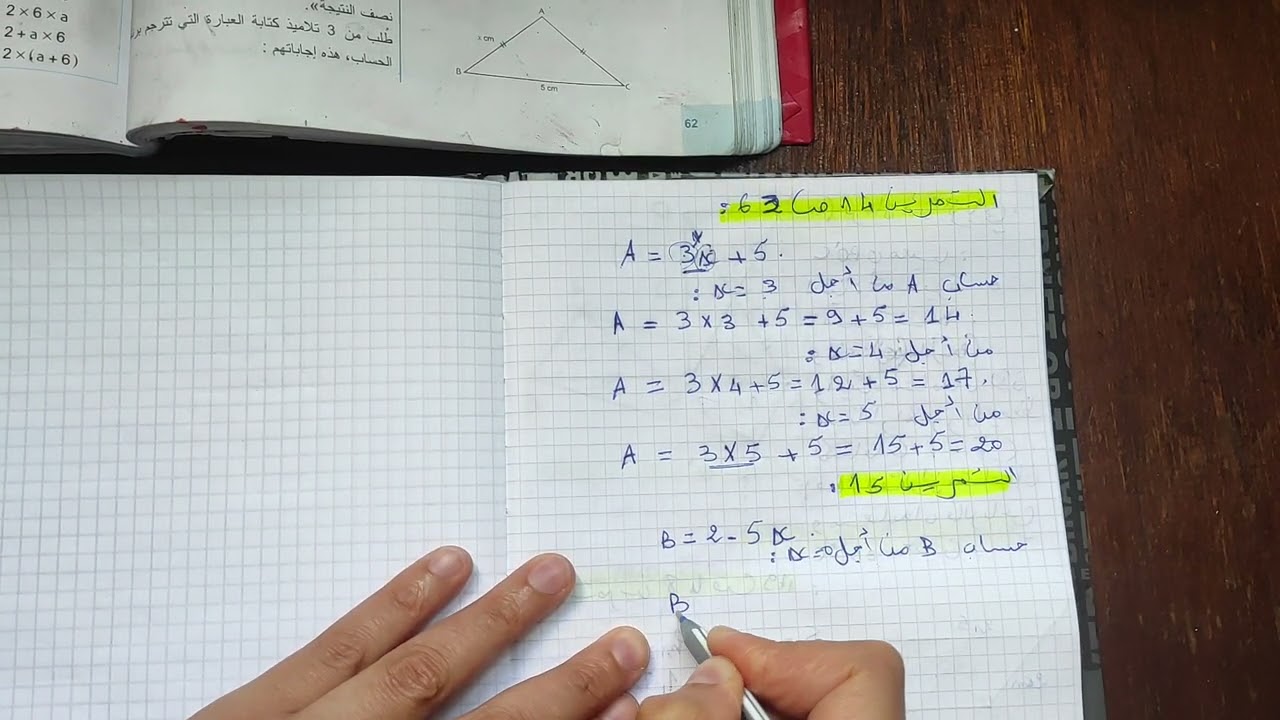 2×6×a
2+a×6
2×(a+6)
نصف النتيجة».
طُلب من 3 تلاميذ كتابة العبارة التي تترجم
الحساب، هذه إجاباتهم :
A
x cm
B
5 cm
C
62
التمرين 14 ص 62 :
A = 3x + 5.
حساب A من أجل x = 3 :
A = 3 × 3 + 5 = 9 + 5 = 14.
من أجل x = 4 :
A = 3 × 4 + 5 = 12 + 5 = 17.
من أجل x = 5 :
A = 3 × 5 + 5 = 15 + 5 = 20
التمرين 15 :
B = 2 - 5x.
حساب B من أجل x = 0 :
B